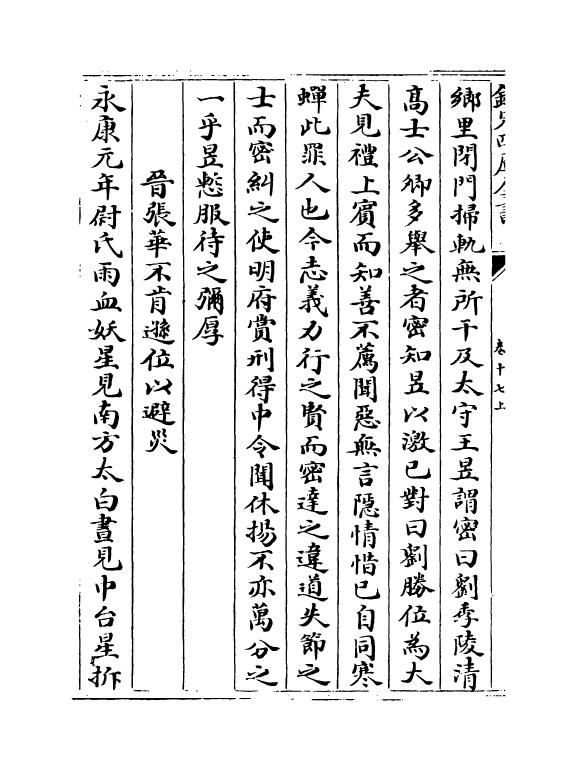 欽定四庫全書
卷十七上
鄉里閉門掃軌無所干及太守王昱謂密曰劉季陵清
高士公卿多舉之者密知昱以激已對曰劉勝位為大
夫見禮上賓而知善不薦聞惡無言隱情惜已自同寒
蟬此罪人也今志義力行之賢而密達之違道失節之
士而密糾之使明府賞刑得中令聞休揚不亦萬分之
一乎昱慙服待之彌厚
晉張華不肯遜位以避災
永康元年尉氏雨血妖星見南方太白晝見中台星拆